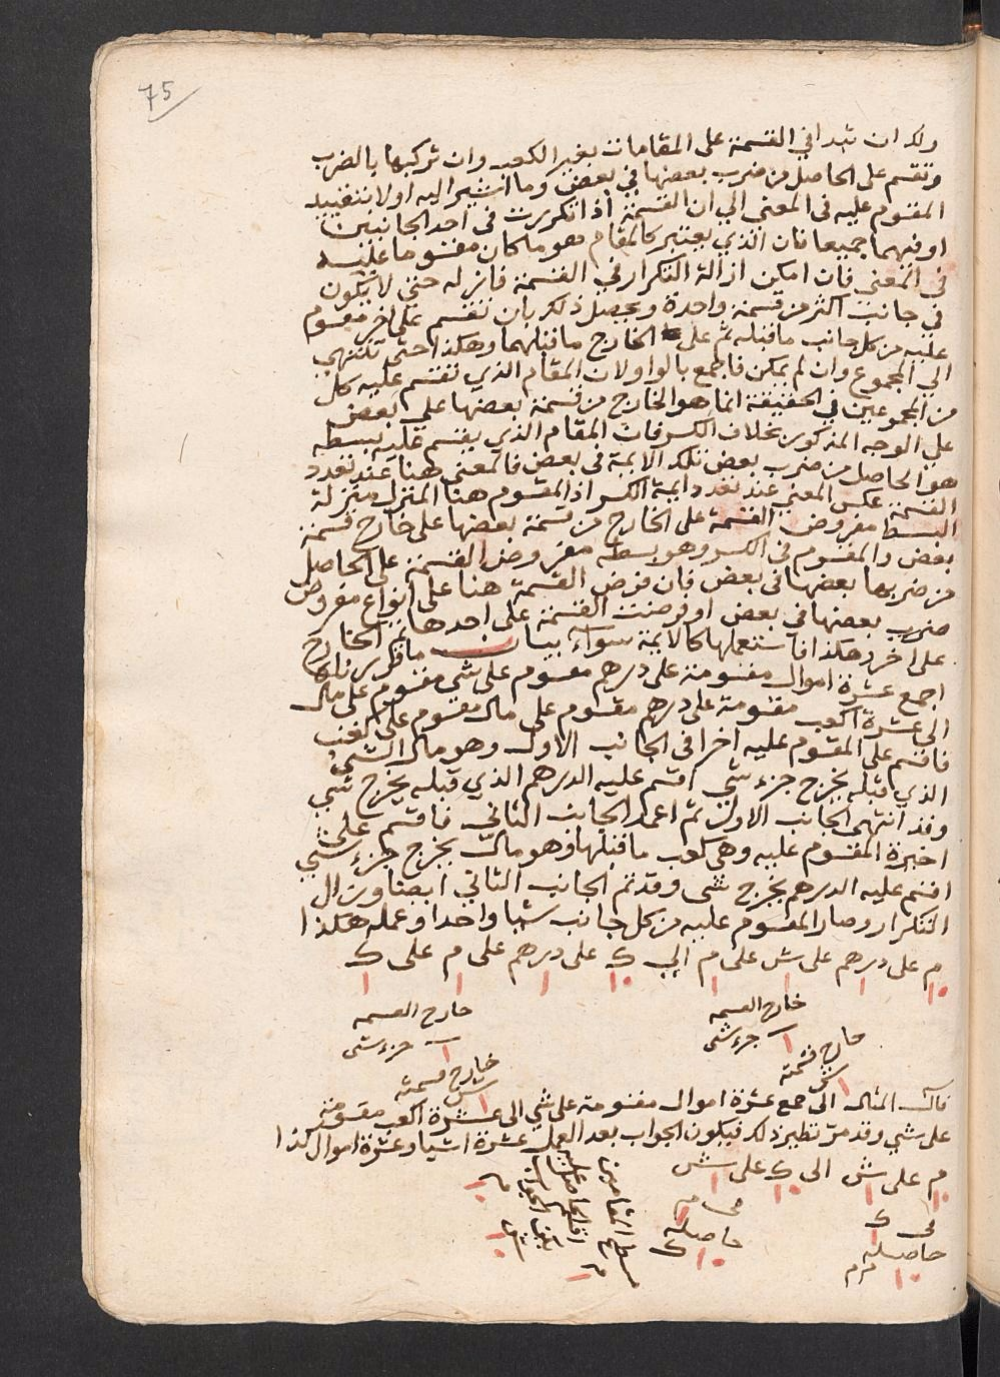 75
ولك ان تبدا في القسمة على المقامات بغير الكعب وان تركبها بالضرب
وتقسم على الحاصل من ضرب بعضها في بعض وما اشير اليه اولا بتقييد
المقسوم عليه في المعنى الي ان القسمة اذا تكررت في احد الجانبين
او فيهما جميعا فان الذي يعتبر كالمقام هو ما كان مقسوما عليه
في المعنى فان امكن ازالة التكرار في القسمة فازله حتى لا يكون
في جانب اكثر من قسمة واحدة ويحصل ذلك بان تقسم على اخر مقسوم
عليه من كل جانب ما قبله ثم على الخارج ما قبلهما وهكذا حتى تنتهي
الي المجموع وان لم يمكن فاجمع بالواو لان المقام الذي تقسم عليه كل
من المجموعين في الحقيقة انما هو الخارج من قسمة بعضها على بعض
على الوجه المذكور بخلاف الكسر فان المقام الذي يقسم عليه بسطه
هو الحاصل من ضرب بعض تلك الايمة في بعض فالمعنى هنا عند تعدد
القسمة عكس المعنى عند تعدد ايمة الكسر اذ المقسوم هنا المنزل منزلة
البسط مفروض القسمة على الخارج من قسمة بعضها على خارج قسمة
بعض والمقسوم في الكسر وهو بسطه مفروض القسمة على الحاصل
من ضربها بعضها في بعض فان فرض القسمة هنا على انواع مفروض
ضرب بعضها في بعض او فرضت القسمة على احدها ثم الخارج
على اخر وهكذا فاستعملها كالايمة سواء بيان ما ذكر
اجمع عشرة اموال مقسومة على درهم مقسوم على شي مقسوم على مال
الي عشرة اكعب مقسومة على درهم مقسوم على مال مقسوم على كعب
فاقسم على المقسوم عليه اخرا في الجانب الاول وهو مال الشي
الذي قبله يخرج جزء شي اقسم عليه الدرهم الذي قبله يخرج شي
وقد انتهى الجانب الاول ثم اعمد الجانب الثاني فاقسم على
اخيرة المقسوم عليه وهي كعب ما قبلها وهو مال يخرج جزء شي
اقسم عليه الدرهم يخرج شي وقد تم الجانب الثاني ايضا وزال
التكرار وصار المقسوم عليه من كل جانب شيا واحدا وعمله هكذا
م على درهم على ش على م الي ك على درهم على م على ك
١٠ ١ ١ ١ ١٠ ١ ١ ١
خارج القسمة خارج القسمة
١ جزء شي ١ جزء شي
خارج قسمته خارج قسمته
ش ١ ش ١
فال المثال الى جمع عشرة اموال مقسومة على شي الى عشرة اكعب مقسومة
على شي وقد مر نظير ذلك فيكون الجواب بعد العمل عشرة اشيا وعشرة اموال كذا
م على ش الى ك على ش
١٠ ١ ١٠ ١
في ك في م
حاصله حاصله
١٠ م م ١٠ ك
مسطح المقامين
م ١
اقسم الحاصل عليه
يكن الجواب
م ١٠
ش ١٠